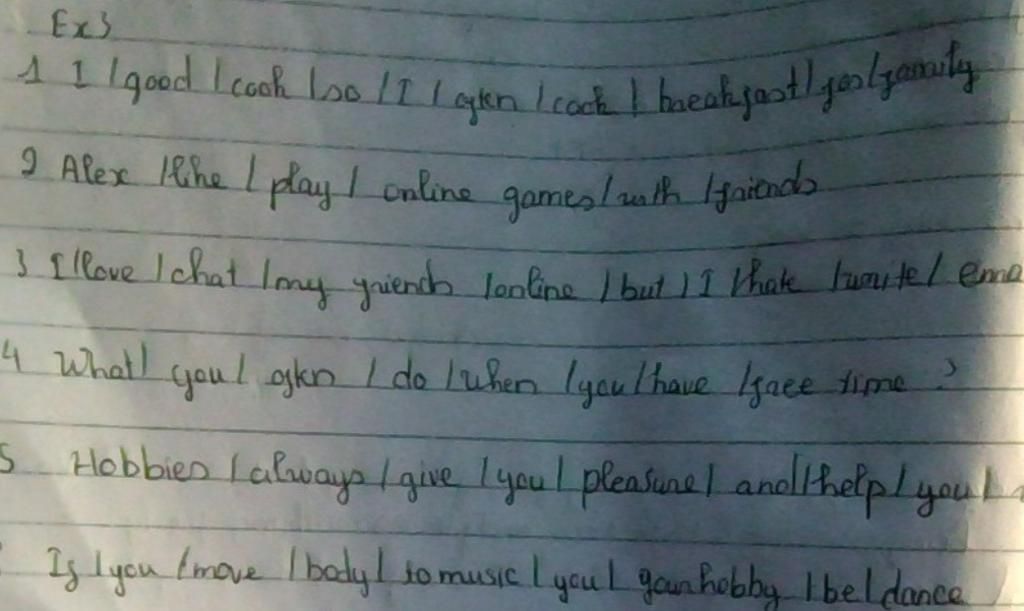 Ex3
1 I / good / cook / so / I / often / cook / breakfast / for / family
2 Alex / like / play / online games / with / friends
3 I / love / chat / my friends / online / but / I / hate / write /
4 What / you / often / do / when / you / have / free time ?
5 Hobbies / always / give / you / pleasure / and / help / you /
If / you / move / body / to music / you / your hobby / be / dance